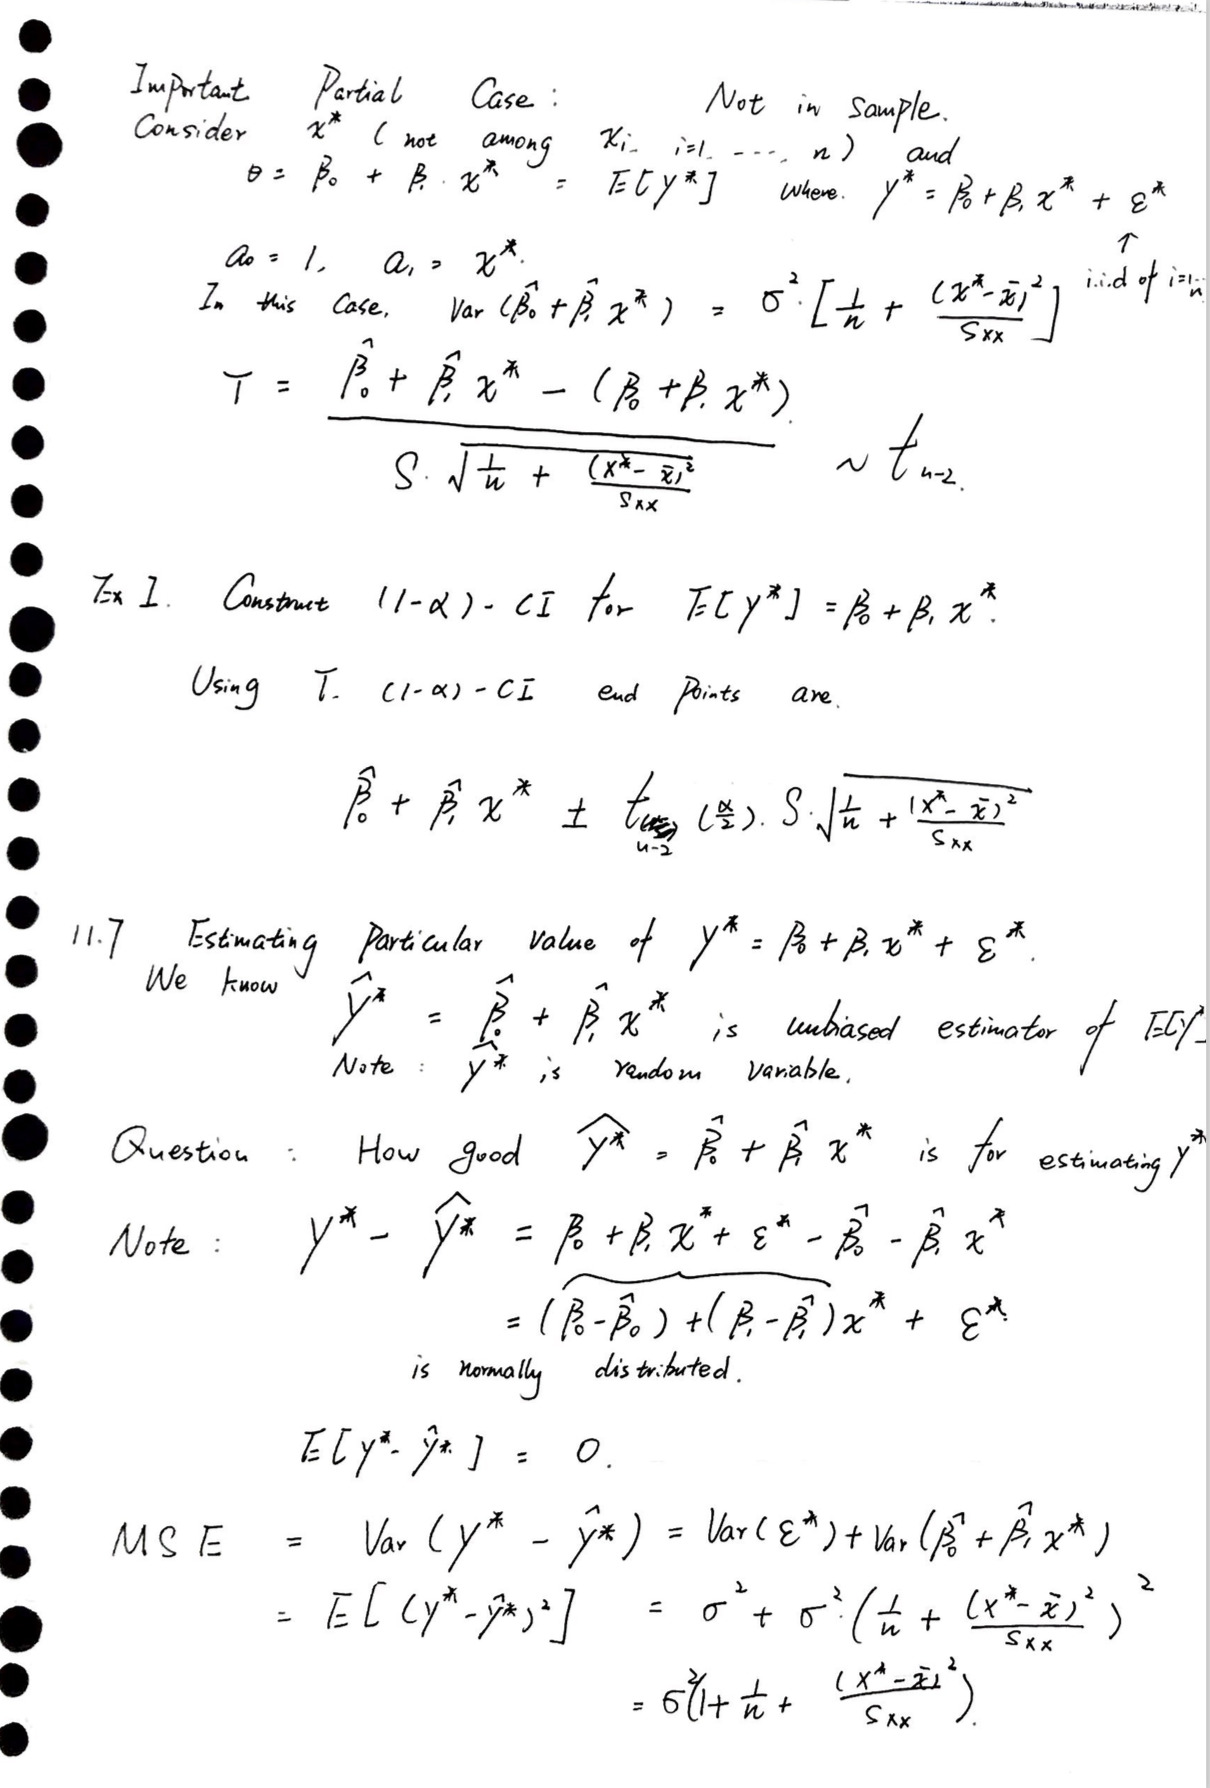 Important Partial Case : Not in sample.
Consider x* ( not among xi, i=1, ..., n ) and
θ = β₀ + β₁ · x* = E[y*] where. y* = β₀ + β₁ x* + ε*
↑
a₀ = 1, a₁ = x*.
i.i.d of i=1..n
In this case, Var (β̂₀ + β̂₁ x*) = σ² · [1/n + (x*-x̄)²/Sxx]
T = (β̂₀ + β̂₁ x* - (β₀ + β₁ x*)) / (S · √(1/n + (x*-x̄)²/Sxx)) ~ t n-2.
Ex 1. Construct (1-α) - CI for E[y*] = β₀ + β₁ x*.
Using T. (1-α) - CI end points are.
β̂₀ + β̂₁ x* ± t n-2 (α/2). S · √(1/n + (x*-x̄)²/Sxx)
11.7 Estimating Particular value of y* = β₀ + β₁ x* + ε*.
We know
ŷ* = β̂₀ + β̂₁ x* is unbiased estimator of E[y*]
Note : ŷ* is random variable.
Question : How good ŷ* = β̂₀ + β̂₁ x* is for estimating y*
Note : y* - ŷ* = β₀ + β₁ x* + ε* - β̂₀ - β̂₁ x*
= (β₀-β̂₀) + (β₁-β̂₁) x* + ε*
is normally distributed.
E[y*-ŷ*] = 0.
MSE = Var (y* - ŷ*) = Var(ε*) + Var (β̂₀ + β̂₁ x*)
= E[(y*-ŷ*)²] = σ² + σ² · (1/n + (x*-x̄)²/Sxx)²
= σ²(1 + 1/n + (x*-x̄)²/Sxx).